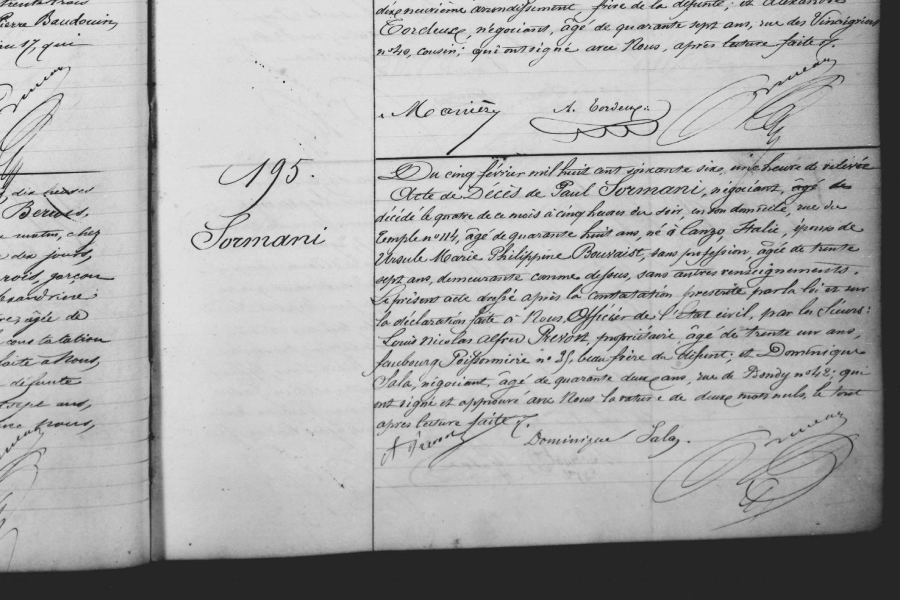 Pierre Baudouin,
17, qui
dix heures
Berus,
matin, chez
dix jours,
garçon
âgée de
constatation
faite à Nous,
défunte
sept ans,
195.
Sormani
dix neuvième arrondissement, frère de la défunte; et Alexandre
Tordeux, négociant, âgé de quarante sept ans, rue des Vinaigriers
n° 40, cousin; qui ont signé avec Nous, après lecture faite.
A. Tordeux
Du cinq février mil huit cent soixante six, une heure de relevée
Acte de Décès de Paul Sormani, négociant, âgé de
décédé le quatre de ce mois à cinq heures du soir, en son domicile, rue du
Temple n° 114, âgé de quarante huit ans, né à Canzo, Italie, époux de
Ursule Marie Philippine Bouvaist, sans profession, âgée de trente
sept ans, demeurante comme dessus, sans autres renseignements.
Le présent acte dressé après la constatation prescrite par la loi et sur
la déclaration faite à Nous, Officier de l'Etat civil, par les Sieurs:
Louis Nicolas Alfred Prevost, propriétaire, âgé de trente un ans,
faubourg Poissonnière n° 35, beau frère du défunt; et Dominique
Sala, négociant, âgé de quarante deux ans, rue de Bondy n° 42; qui
ont signé et approuvé avec Nous la rature de deux mots nuls, le tout
après lecture faite.
A Prevost Dominique Sala.